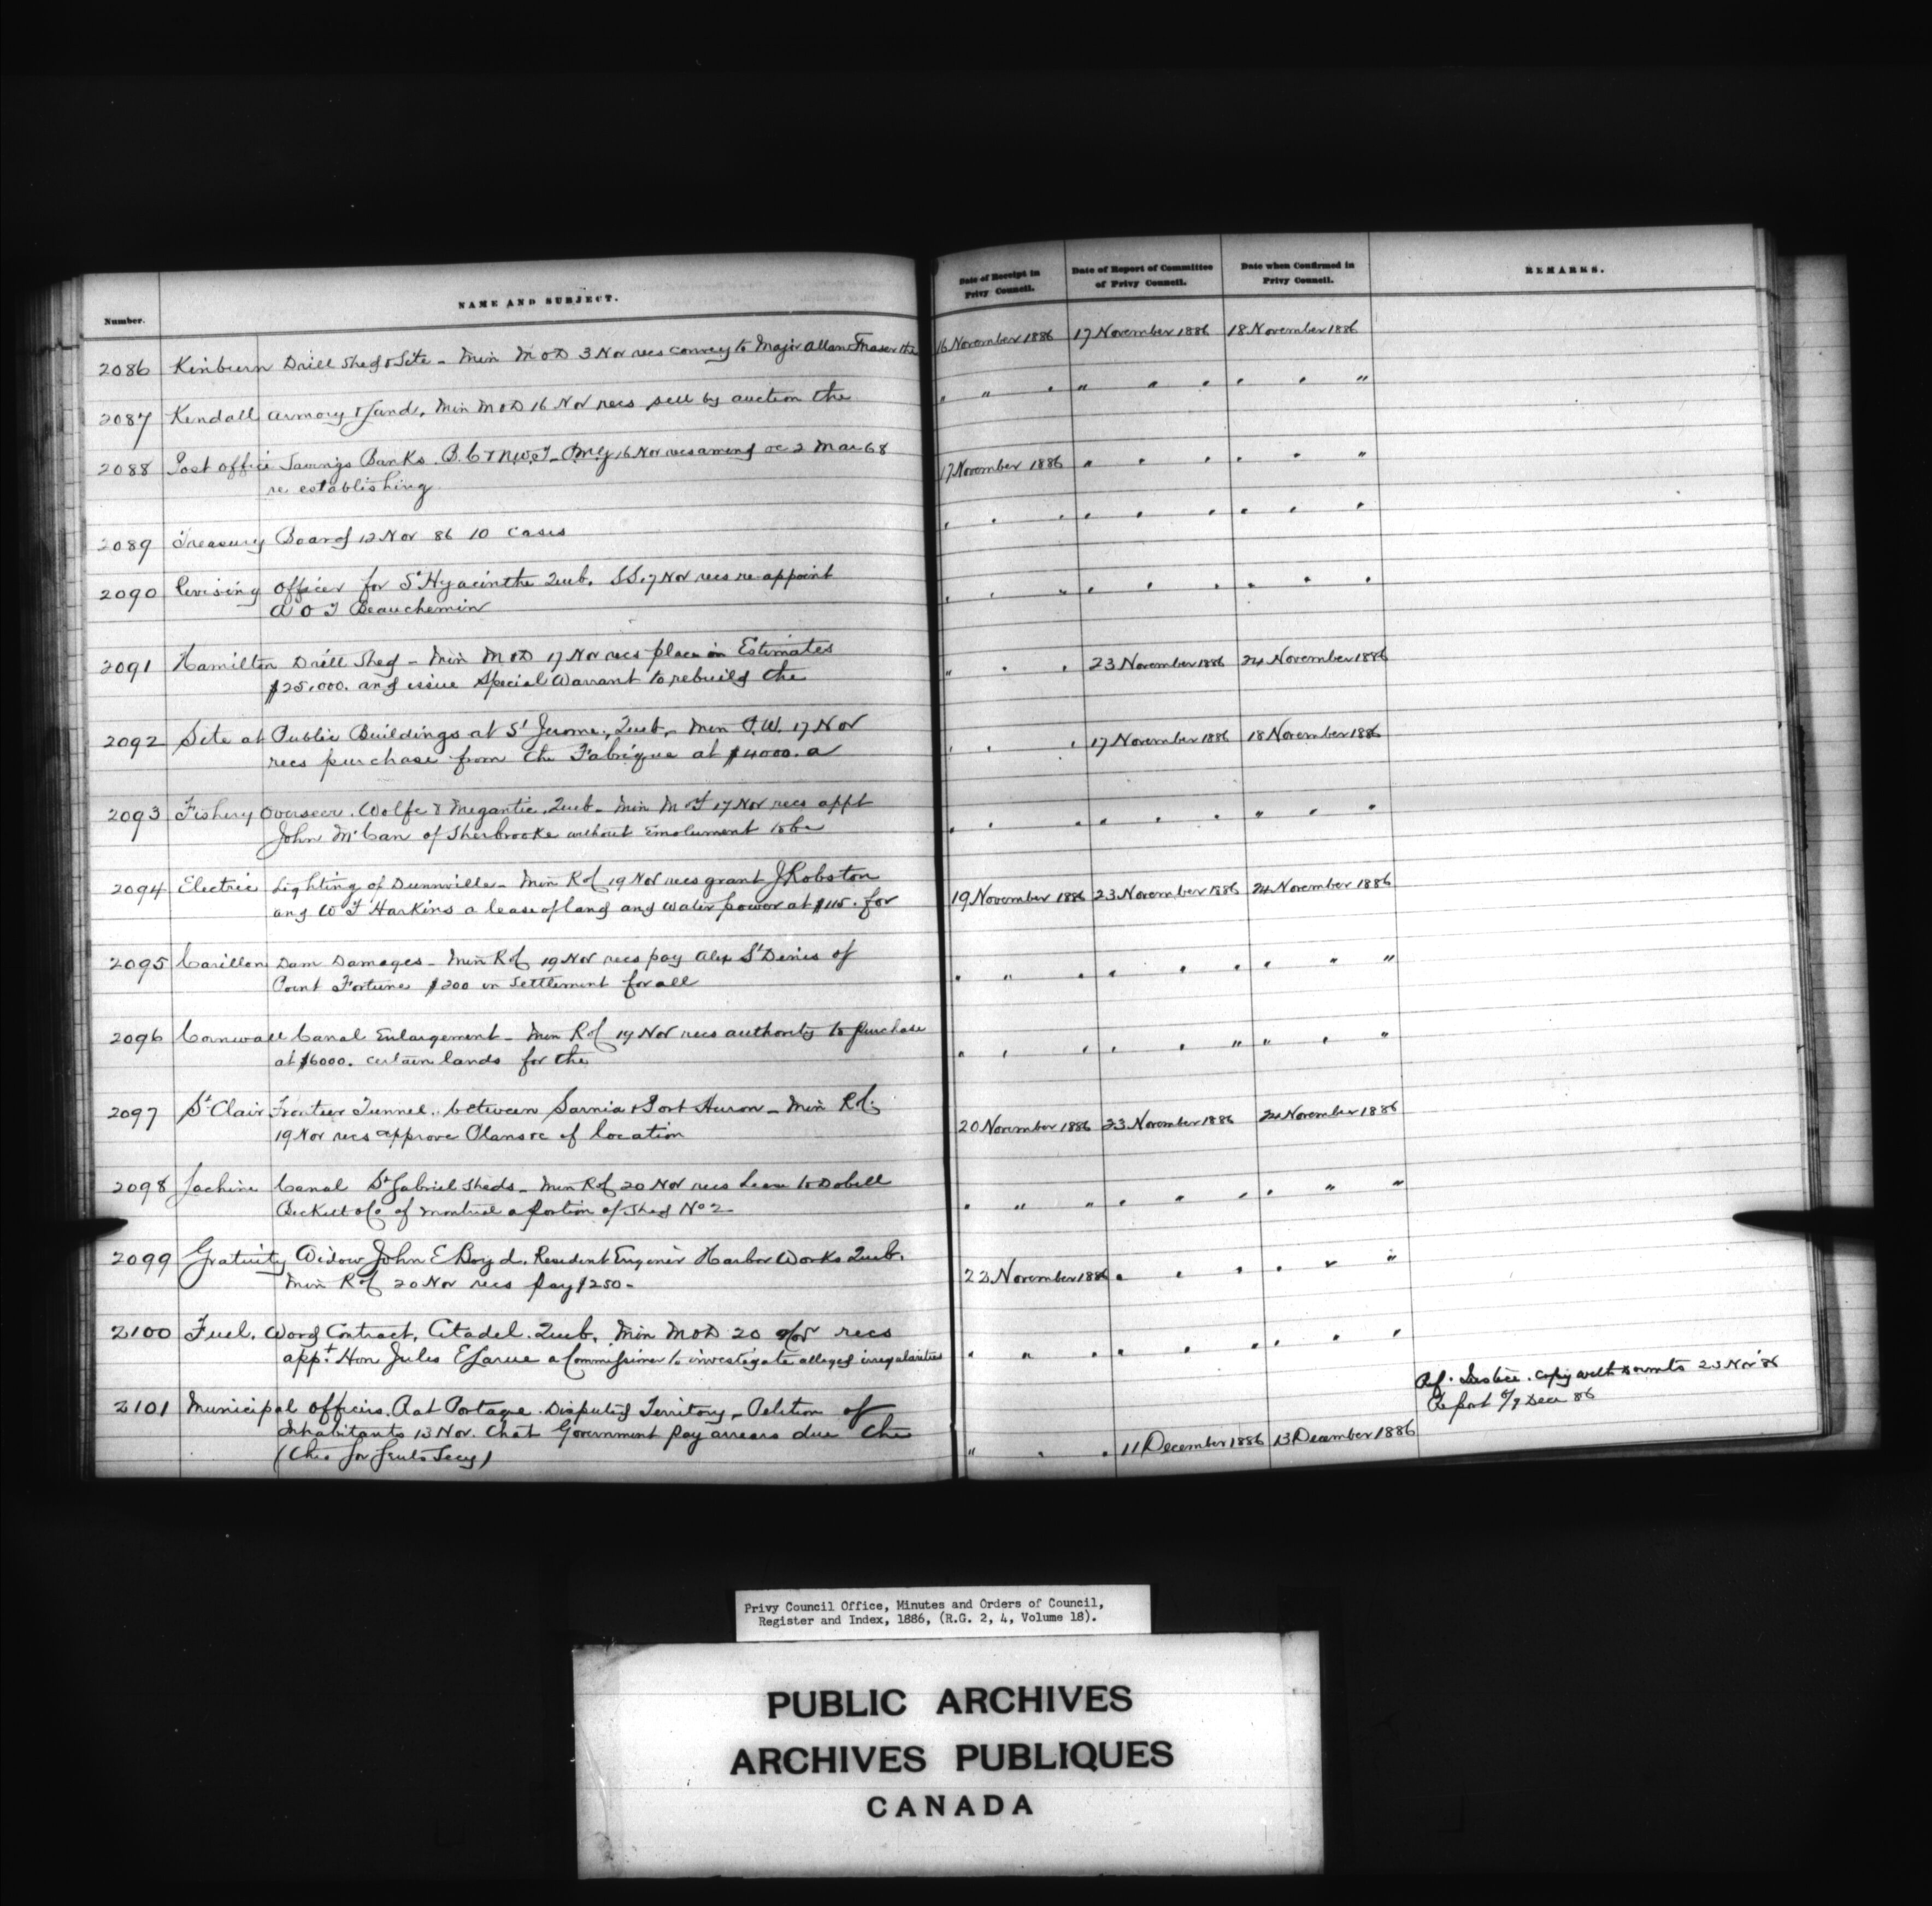 Number.
NAME AND SUBJECT.
Date of Receipt in Privy Council.
Date of Report of Committee of Privy Council.
Date when Confirmed in Privy Council.
REMARKS.
2086 Kinburn Drill Shed & Site - Min M o D 3 Nov recs convey to Major Allan Fraser the 16 November 1886 17 November 1886 18 November 1886
2087 Kendall Armory & Land, Min M o D 16 Nov recs sell by auction the " " " " " " " " "
2088 Post office Savings Banks. B.C & N.W.T - PMG 16 Nov recs amend oc 2 Mar 68 17 November 1886 " " " " " "
re establishing
2089 Treasury Board 12 Nov 86 10 Cases " " " " " " " " "
2090 Revising Officer for St Hyacinthe Queb. SS. 17 Nov recs re-appoint " " " " " " " " "
A O T Beauchemin
2091 Hamilton Drill Shed - Min M o D 17 Nov recs place in Estimates " " " 23 November 1886 24 November 1886
$25,000. and issue Special Warrant to rebuild the
2092 Site at Public Buildings at St Jerome, Queb, - Min P.W. 17 Nov " " " 17 November 1886 18 November 1886
recs purchase from the Fabrique at $4000. a
2093 Fishery Overseer. Wolfe & Megantic. Queb - Min M o F 17 Nov recs appt " " " " " " " " "
John McCan of Sherbrooke without Emolument to be
2094 Electric Lighting of Dunnville - Min R of 19 Nov recs grant J Robston 19 November 1886 23 November 1886 24 November 1886
and W F Harkins a lease of land and water power at $115. for
2095 Carillon Dam Damages - Min R of 19 Nov recs pay Alex St Denis of " " " " " " " " "
Point Fortune $200 in Settlement for all
2096 Cornwall Canal Enlargement - Min R of 19 Nov recs authority to purchase " " " " " " " " "
at $6000. certain lands for the
2097 St Clair Frontier Tunnel. between Sarnia & Port Huron - Min R of. 20 November 1886 23 November 1886 24 November 1886
19 Nov recs approve Plans &c of location
2098 Lachine Canal St Gabriel Sheds - Min R of 20 Nov recs Lease to Dobell " " " " " " " " "
Beckett & Co of Montreal a portion of Shed No 2 -
2099 Gratuity Widow John E Boyd. Resident Engineer Harbor Works Queb. 22 November 1886 " " " " " "
Min R of 20 Nov recs Pay $250 -
2100 Fuel. Wood Contract, Citadel. Queb. Min M o D 20 Nov recs " " " " " " " " "
appt Hon Jules E Larue a Commissioner to investigate alleged irregularities
2101 Municipal Officers. Rat Portage. Disputed Territory - Petition of " " " 11 December 1886 13 December 1886 Ref. Justice. Copy with 23 Nov '86
Inhabitants 13 Nov. that Government pay arrears due the Report 7 Dece 86
Privy Council Office, Minutes and Orders of Council,
Register and Index, 1886, (R.G. 2, 4, Volume 18).
PUBLIC ARCHIVES
ARCHIVES PUBLIQUES
CANADA